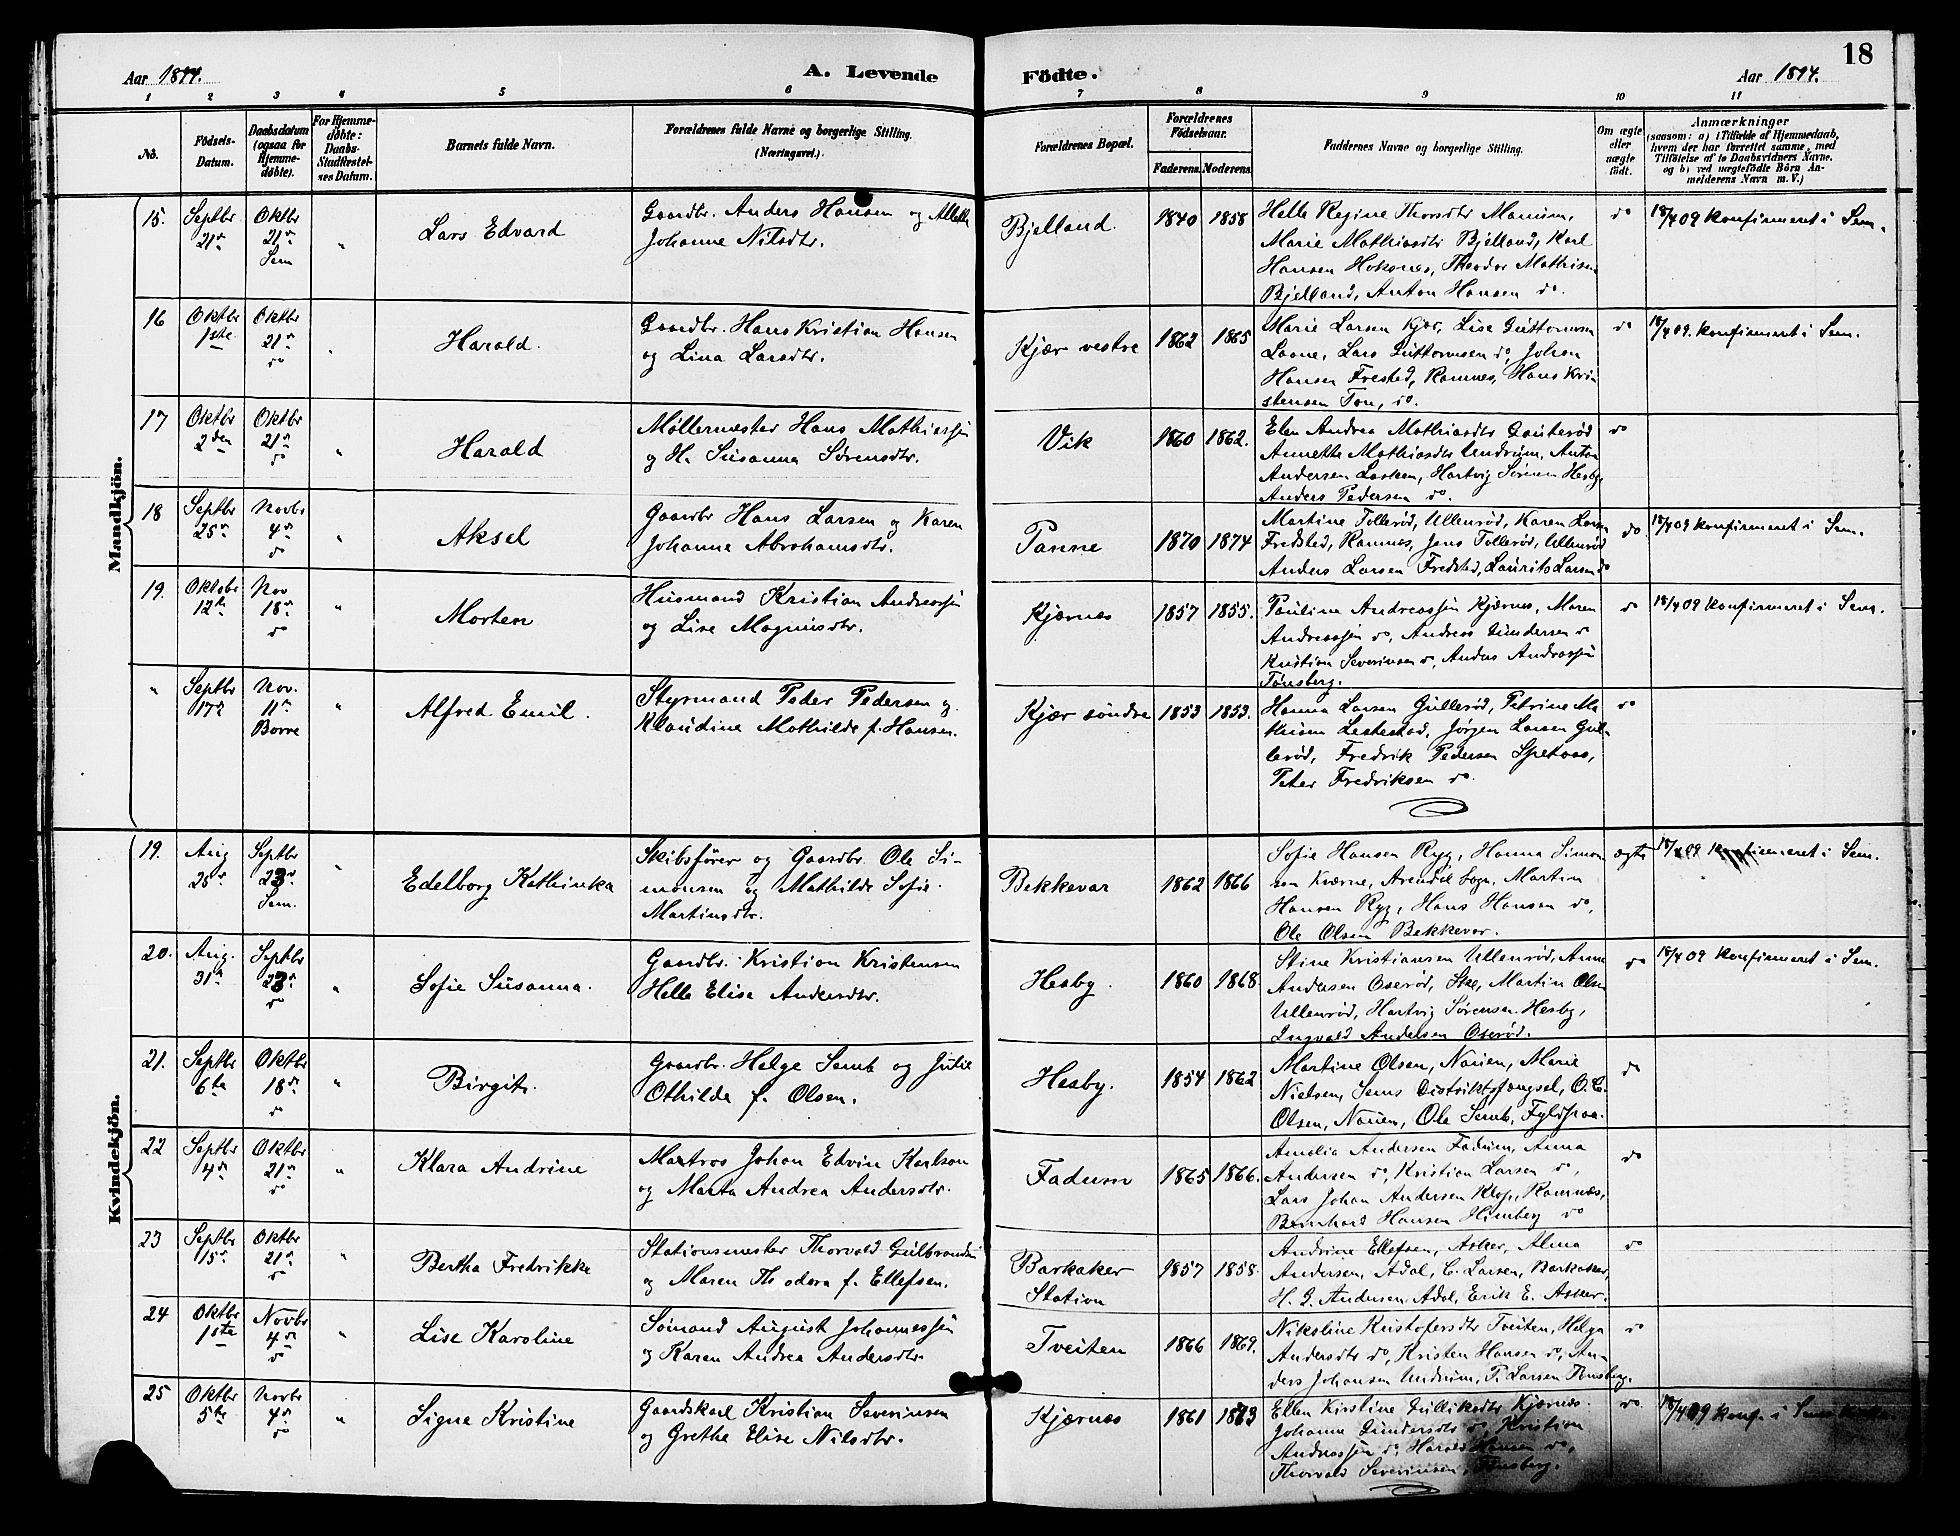 18
Aar 1894.
A. Levende Födte.
Aar 1894.
1 2 3 4 5 6 7 8 9 10 11
No.
Födsels-Datum.
Daabsdatum (ogsaa for Hjemme-döbte).
For Hjemme-döbte: Daabs-Stadfæstel-ses Datum.
Barnets fulde Navn.
Forældrenes fulde Navne og borgerlige Stilling. (Næringsvei.)
Forældrenes Bopæl.
Forældrenes Födselsaar.
Faderens. Moderens.
Faddernes Navne og borgerlige Stilling.
Om ægte eller uægte födt.
Anmærkninger
(saasom: a) i Tilfælde af Hjemmedaab, hvem der har forrettet samme, med Tilföielse af to Daabsvidners Navne. og b) ved uægtefödte Börn An-melderens Navn m.V.)
Mandkjön.
15. Septbr 21de Oktbr 21de Sem " Lars Edvard
Gaardbr. Anders Hansen og Alette
Johanne Nilsdtr.
Bjelland. 1840 1858
Helle Regine Thorsdtr Manum,
Marie Mathiasdtr Bjelland, Karl
Hansen Hoksnes, Theodor Mathisen
Bjelland, Anton Hansen do.
do 18/4 09 konfirmeret i Sem.
16 Oktbr 1ste Oktbr 21de do " Harald.
Gaardbr. Hans Kristian Hansen
og Lina Larsdtr.
Kjær vestre 1862 1865
Marie Larsen Kjær, Lise Guttormsen
Laane, Lars Guttormsen do, Johan
Hansen Frested, Ramnes, Hans Kri-
stensen Ton, do.
do 18/4 09. konfirmeret i Sem.
17 Oktbr 2den Oktbr 21de do " Harald
Møllermester Hans Mathiassen
og H. Susanna Sørensdtr.
Vik 1860 1862.
Elen Andrea Mathiasdtr Gauterød
Annette Mathiasdtr Undrum, Anton
Andersen Lasken, Hartvig Sørensen Hesby,
Anders Pedersen do.
do
18 Septbr 25de Novbr 4de do " Aksel
Gaardbr Hans Larsen og Karen
Johanne Abrahamsdtr.
Panne 1870 1874
Martine Tollerød, Ullenrød, Karen Larsen
Fredsted, Ramnes, Jens Tollerød, Ullenrød
Anders Larsen Fredsted, Laurits Larsen do
do. 18/4 09 konfirmeret i Sem.
19. Oktobr 12te Nov 18de do " Morten
Husmand Kristian Andreassen
og Lise Magnusdtr.
Kjærnes 1857 1855.
Pauline Andreassen Kjærnes, Maren
Andreassen do, Andreas Gundersen do
Kristian Severinsen do, Anders Andreassen
Tønsberg.
do 18/4 09 konfirmeret i Sem.
" Septbr 17de Nov. 11te Borre " Alfred Emil.
Styrmand Peder Pedersen og
Klaudine Mathilde f. Hansen.
Kjær søndre 1853 1853.
Hanna Larsen Gullerød, Petrine Ma-
thisen Lestestad, Jørgen Larsen Gul-
lerød, Fredrik Pedersen Spetaas,
Peter Fredriksen do.
do
Kvindekjön.
19. Aug 25de Septbr 23de Sem. " Edelborg Kathinka
Skibsfører og Gaardbr. Ole Si-
monsen og Mathilde Sofie
Martinsdtr.
Bekkevar 1862 1866
Sofie Hansen Ryg, Hanna Simon-
sen Kværne, Arendal Sogn, Martin
Hansen Ryg, Hans Hansen do,
Ole Olsen Bekkevar.
ægte 18/4 09 konfirmeret i Sem.
20. Aug. 31te Septbr 23de do " Sofie Susanna.
Gaardbr. Kristian Kristensen
Helle Elise Andersdtr.
Hesby. 1860 1868
Stine Kristiansen Ullenrød, Anne
Andersen Oserød, Ske, Martin Olsen
Ullenrød, Hartvig Sørensen Hesby,
Ingvald Andersen Oserød.
do 18/4 09 konfirmeret i Sem.
21. Septbr 6te Oktbr 18de do " Birgit.
Gaardbr. Helge Semb og Julie
Othilda f. Olsen.
Hesby. 1854 1862
Martine Olsen, Nauen, Marie
Nielsen, Sems Distriktsfængsel, O. C.
Olsen, Nauen, Ole Semb, Fyldpaa.
do
22 Septbr 4de Oktbr 21de do " Klara Andrine
Matros Johan Edvin Karlson
og Marta Andrea Andersdtr.
Fadum 1865 1866.
Amalia Andersen Fadum, Anna
Andersen do, Kristian Larsen do,
Lars Johan Andersen Klop, Ramnæs,
Bernhard Hansen Himberg do
do
23 Septbr 15de Oktbr 21de do " Bertha Fredrikke
Stationsmester Thorvald Gulbrandsen
og Maren Theodora f. Ellefsen.
Barkaker Station 1857 1858.
Andrine Ellefsen, Asker, Alma
Andersen, Adal, C. Larsen, Barkaker,
H. G. Andersen Adal, Erik E. Asker.
do
24 Oktbr 1ste Novbr 4de do " Lise Karoline
Sømand August Johannessen
og Karen Andrea Andersdtr.
Tveiten 1866 1869.
Nikoline Kristofersdtr Tveiten, Helga
Andersdtr do, Kristen Hansen do, An-
ders Johansen Undrum, P. Larsen Tønsberg.
do
25 Oktbr 5te Novbr 4de do " Signe Kristine
Gaardskarl Kristian Severinsen
og Grethe Elise Nilsdtr.
Kjærnes 1861 1863
Ellen Kirstine Gulliksdtr Kjærnes.
Johanne Gundersdtr do, Kristian
Andreassen do, Harald Hansen do,
Thorvald Severinsen, Tønsberg.
do. 18/4 09 konf. i Sems kirke.